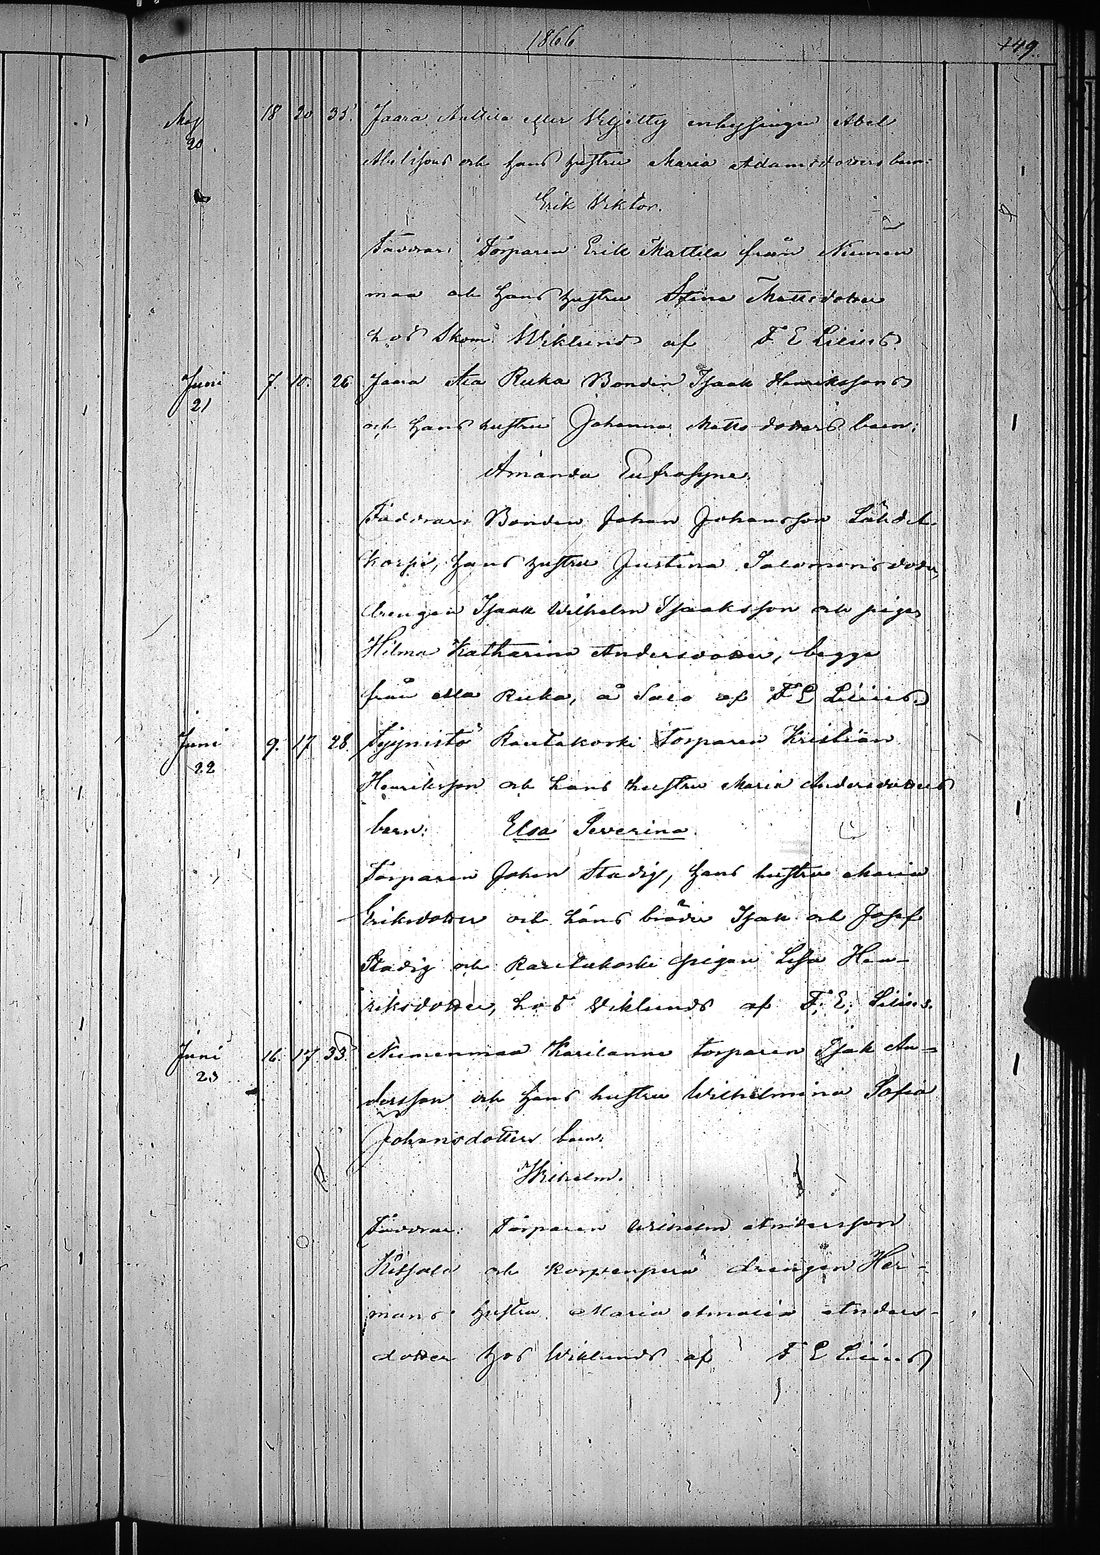 1866
149.
Maj 18 20 35. Jaara Anttila eller Viljetty inhysingen Abel
20 Abelssons och hans hustru Maria Adamsdotters barn:
Erik Viktor.
Faddrar: Torparen Erik Mattila från Niemen
maa och hans hustru Stina Mattsdotter
hos Skom. Wiklund af F E Lilius
Juni 7. 10. 26 Jaara Ala Ruka Bonden Isaak Henrikssons
21 och hans hustru Johanna Matts dotters barn:
Amanda Eufrosyne.
Faddrar: Bonden Johan Johansson Lähdet-
korpi, hans hustru Justina Salomonsdotter,
drengen Isaak Wilhelm Isaaksson och pigan
Hilma Katharina Andersdotter, begge
från Ala Ruka, å Salo af F E Lilius.
Juni 9. 17 28. Syynistö Rautakoski Torparen Kristian
22 Henriksson och hans hustru Maria Andersdotters
barn: Elsa Severina.
Torparen Johan Stadig, hans hustru Maria
Eriksdotter och hans bröder Isak och Josef
Stadig och Rautakoski pigan Lisa Hen-
riksdotter, hos Wiklunds af F. E. Lilius.
Juni 16. 17 33. Niemenmaa Karilanma torparen Isak An-
23 dersson och hans hustru Wilhelmina Sofia
Johansdotters barn:
Wilhelm.
Faddrar: Torparen Wilhelm Andersson
och Korpenperä drengen Her-
mans hustru Maria Amalia Anders-
dotter hos Wiklunds af F E Lilius